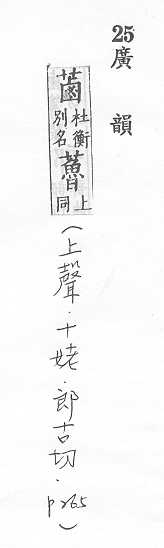 25廣韻
蓾杜衡別名上同
(上聲．十姥．郎古切．p265)